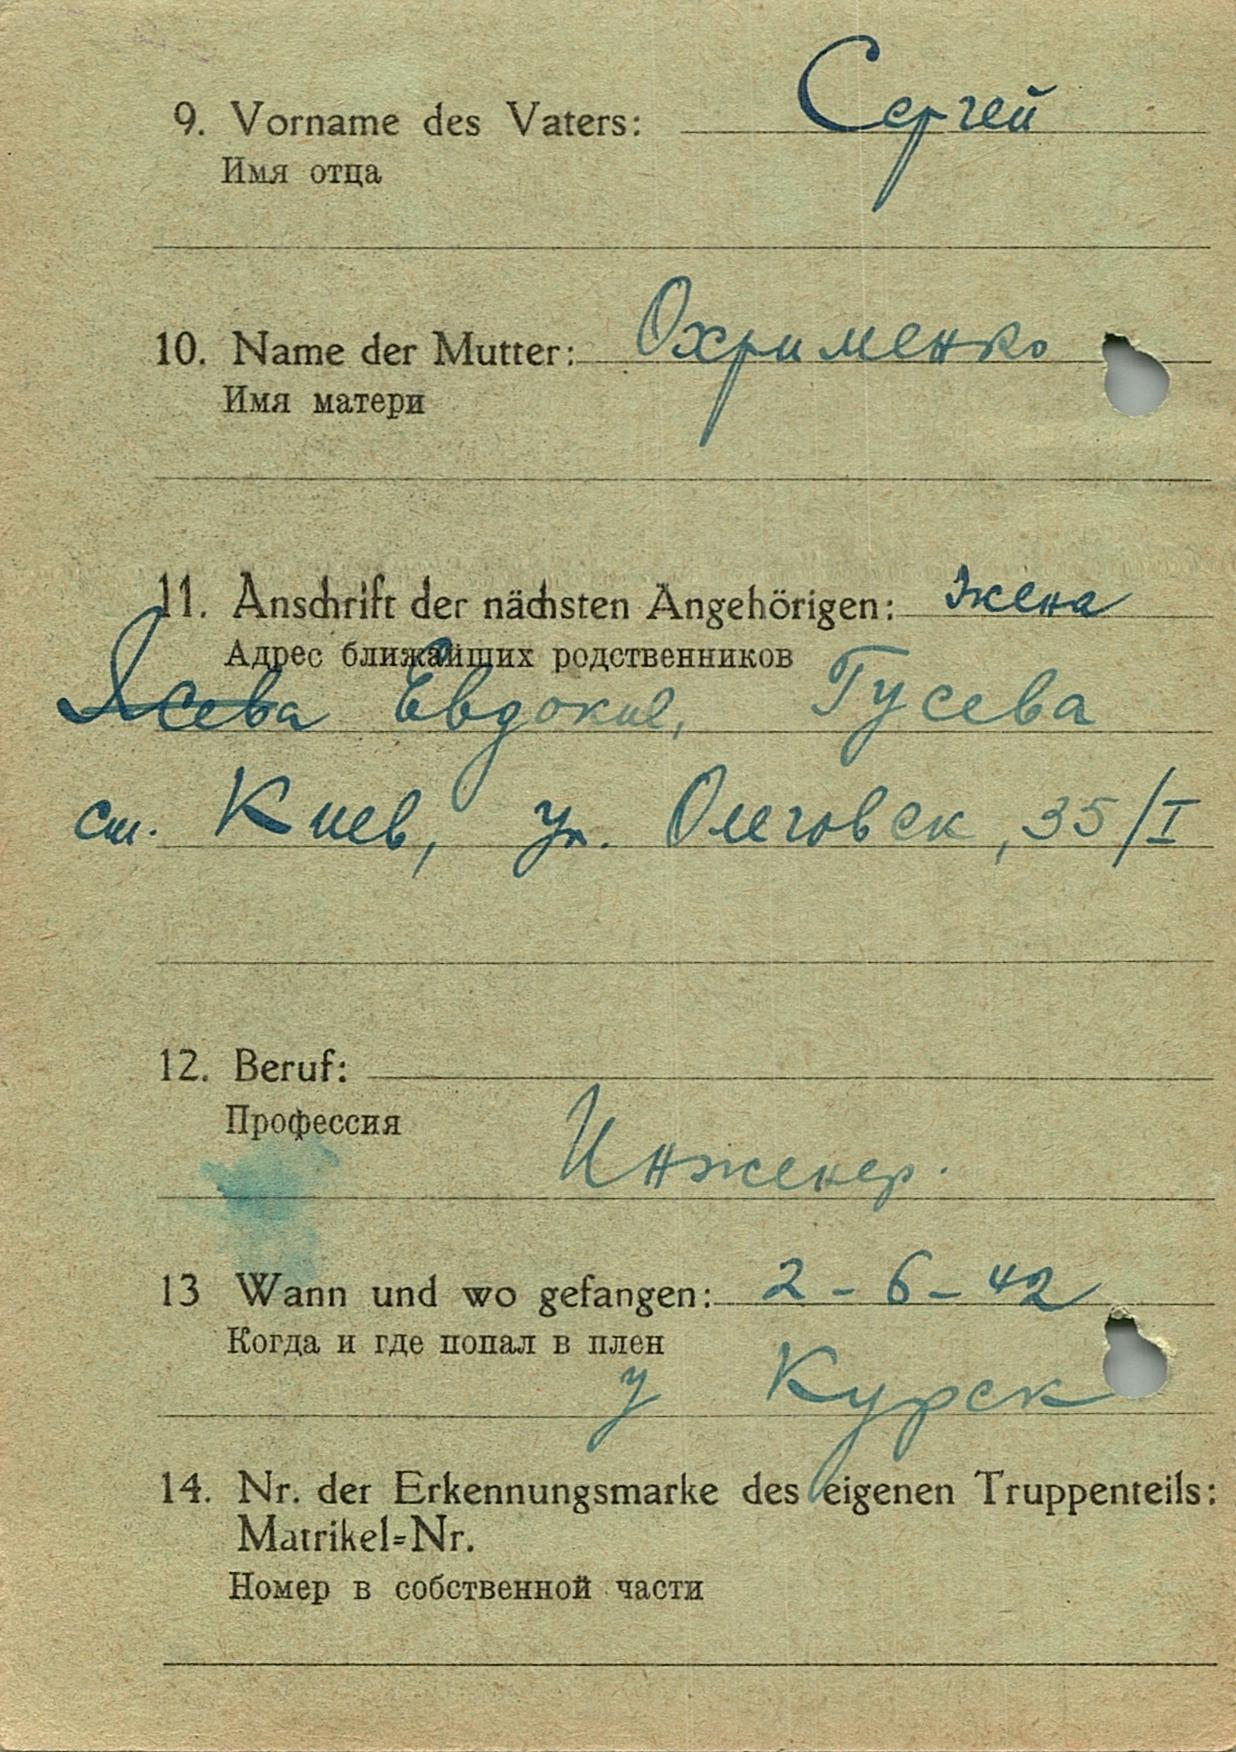 9. Vorname des Vaters: Сергей
Имя отца
10. Name der Mutter: Охрименко
Имя матери
11. Anschrift der nächsten Angehörigen: жена
Адрес ближайших родственников
Евдокие, Гусева
ст. Киев, ул. Олеговск, 35/I
12. Beruf:
Профессия
Инженер.
13 Wann und wo gefangen: 2-6-42
Когда и где попал в плен
у Курск
14. Nr. der Erkennungsmarke des eigenen Truppenteils:
Matrikel=Nr.
Номер в собственной части